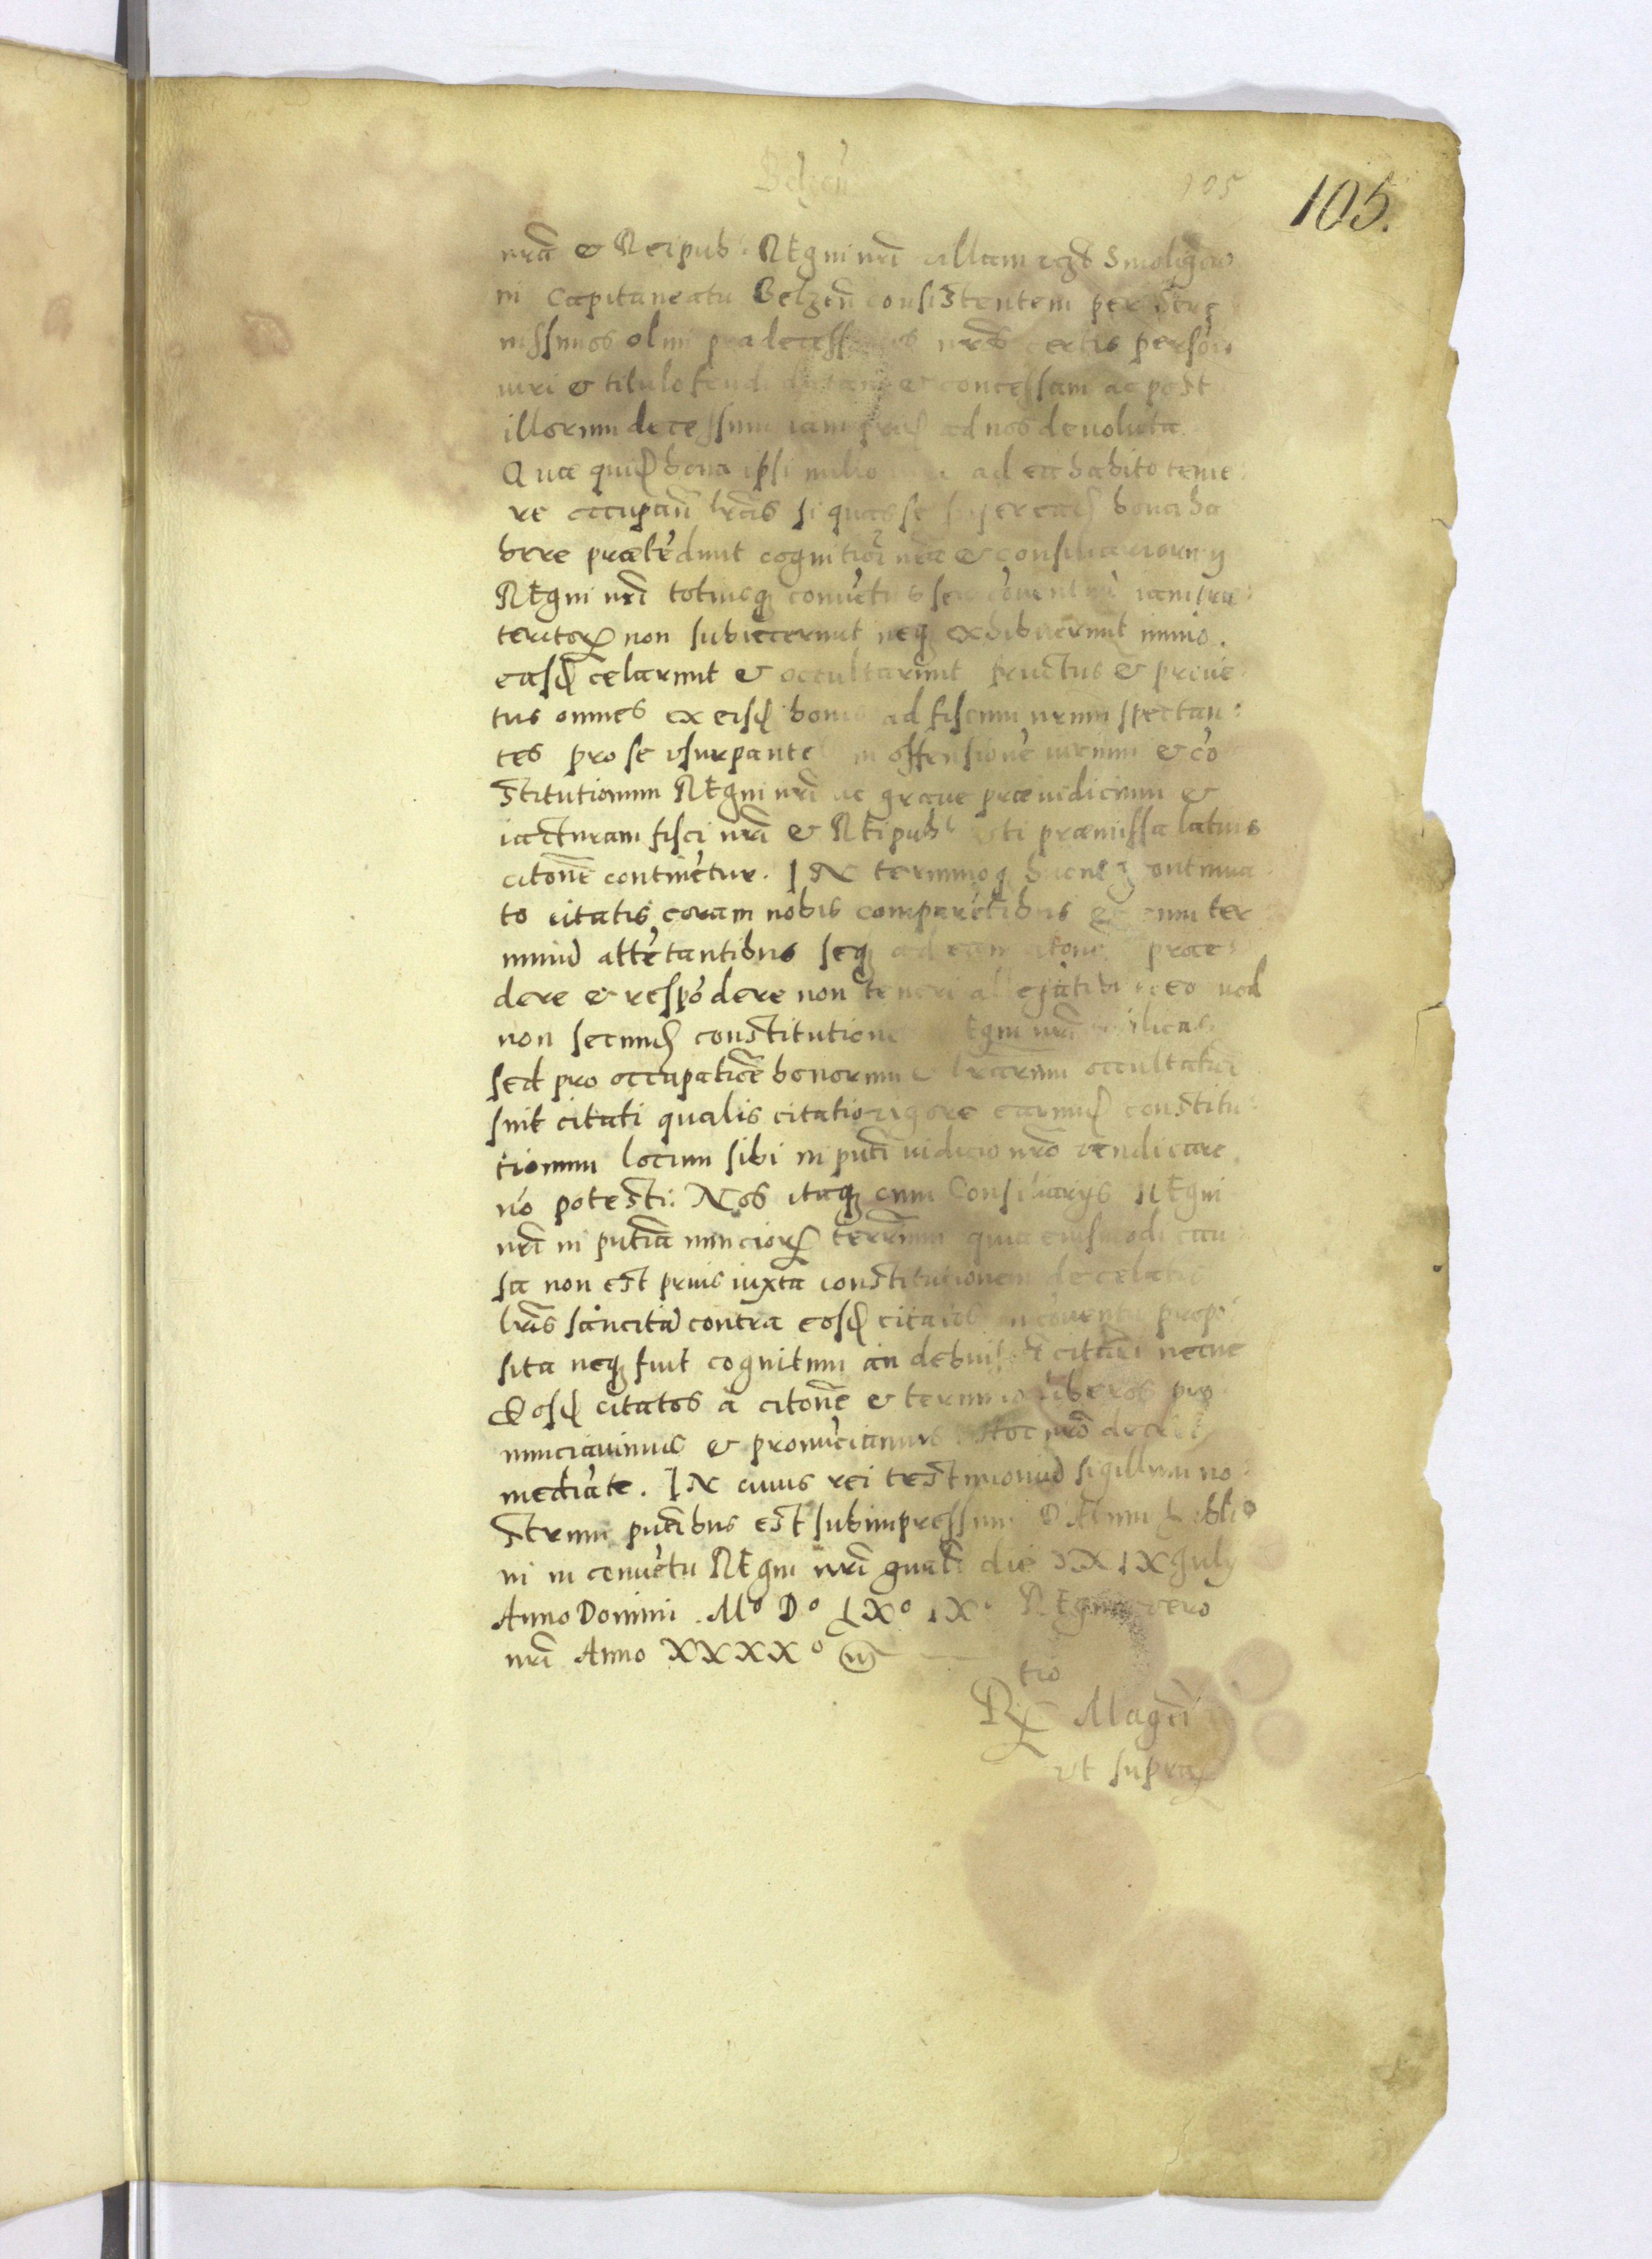 Belzeñ
105
105.
nr̃a & Reipub. REgni nr̃i villam Smoligow
in Capitaneatu Belzeñ consistentem per Sere
nissimos olim praedecessores nr̃os certis person
iuri & titulo feudi datam & concessam ac post
illorum decessum iam ad nos devoluta.
Quae quid bona ipsi nullo iure ad ea habito teme
re occupaũ lr̃as si quas se super ead bona ha
bere praetēdunt cognitioĩ nr̃ae & consiliariorum
REgni nr̃i totiusq conuētus seu cōuentuū iam prae
teritor non subiecerunt neq exhibuerunt immo.
easd celarunt & occultarunt fructus & prouē
tus omnes ex eisd bonis ad fiscum nrum spectan:
tes pro se vsurpantes in offensionē iurium & cō
stitutionum REgni nr̃i ac graue praeiudicium &
iacturam fisci nr̃i & REipub vti praemissa latius
citoñe continētur. IN terminoq hucusq continua
to citatis coram nobis comparētibus & eum ter
minū attētantibus seq ad eam citonē proce
dere & respōdere non teneri allegātibus eo quod
non secund constitutiones REgni nr̃i publicas
sed pro occupatiõe bonorum & lr̃arum occultatiõe
sint citati qualis citatio vigore earund constitu:
tionum locum sibi in pñti iudicio nr̃o vendicare
nō potest. Nos itaq cum Consiliariis REgni
nr̃i in pñtia nuncior terrarum quia eiusmodi cau:
sa non est prius iuxta constitutionem de celatis
lr̃is sancitā contra eosd citatos in cōuentu propo
sita neq fuit cognitum an debuissēt citari necne
Eosd citatos a citoñe & termino liberos pro
nunciauimus & pronūciamus. Hoc nr̃o decreto
mediāte. IN cuius rei testimoniū sigillum no:
strum pñtibus est subimpressum DAtum Lubli
ni in conuētu REgni nr̃i gnali die XXIX July
Anno Domini. Mº Dº LXº IXº REgni vero
nr̃i Anno XXXXº
Rx tio Magci
vt supra